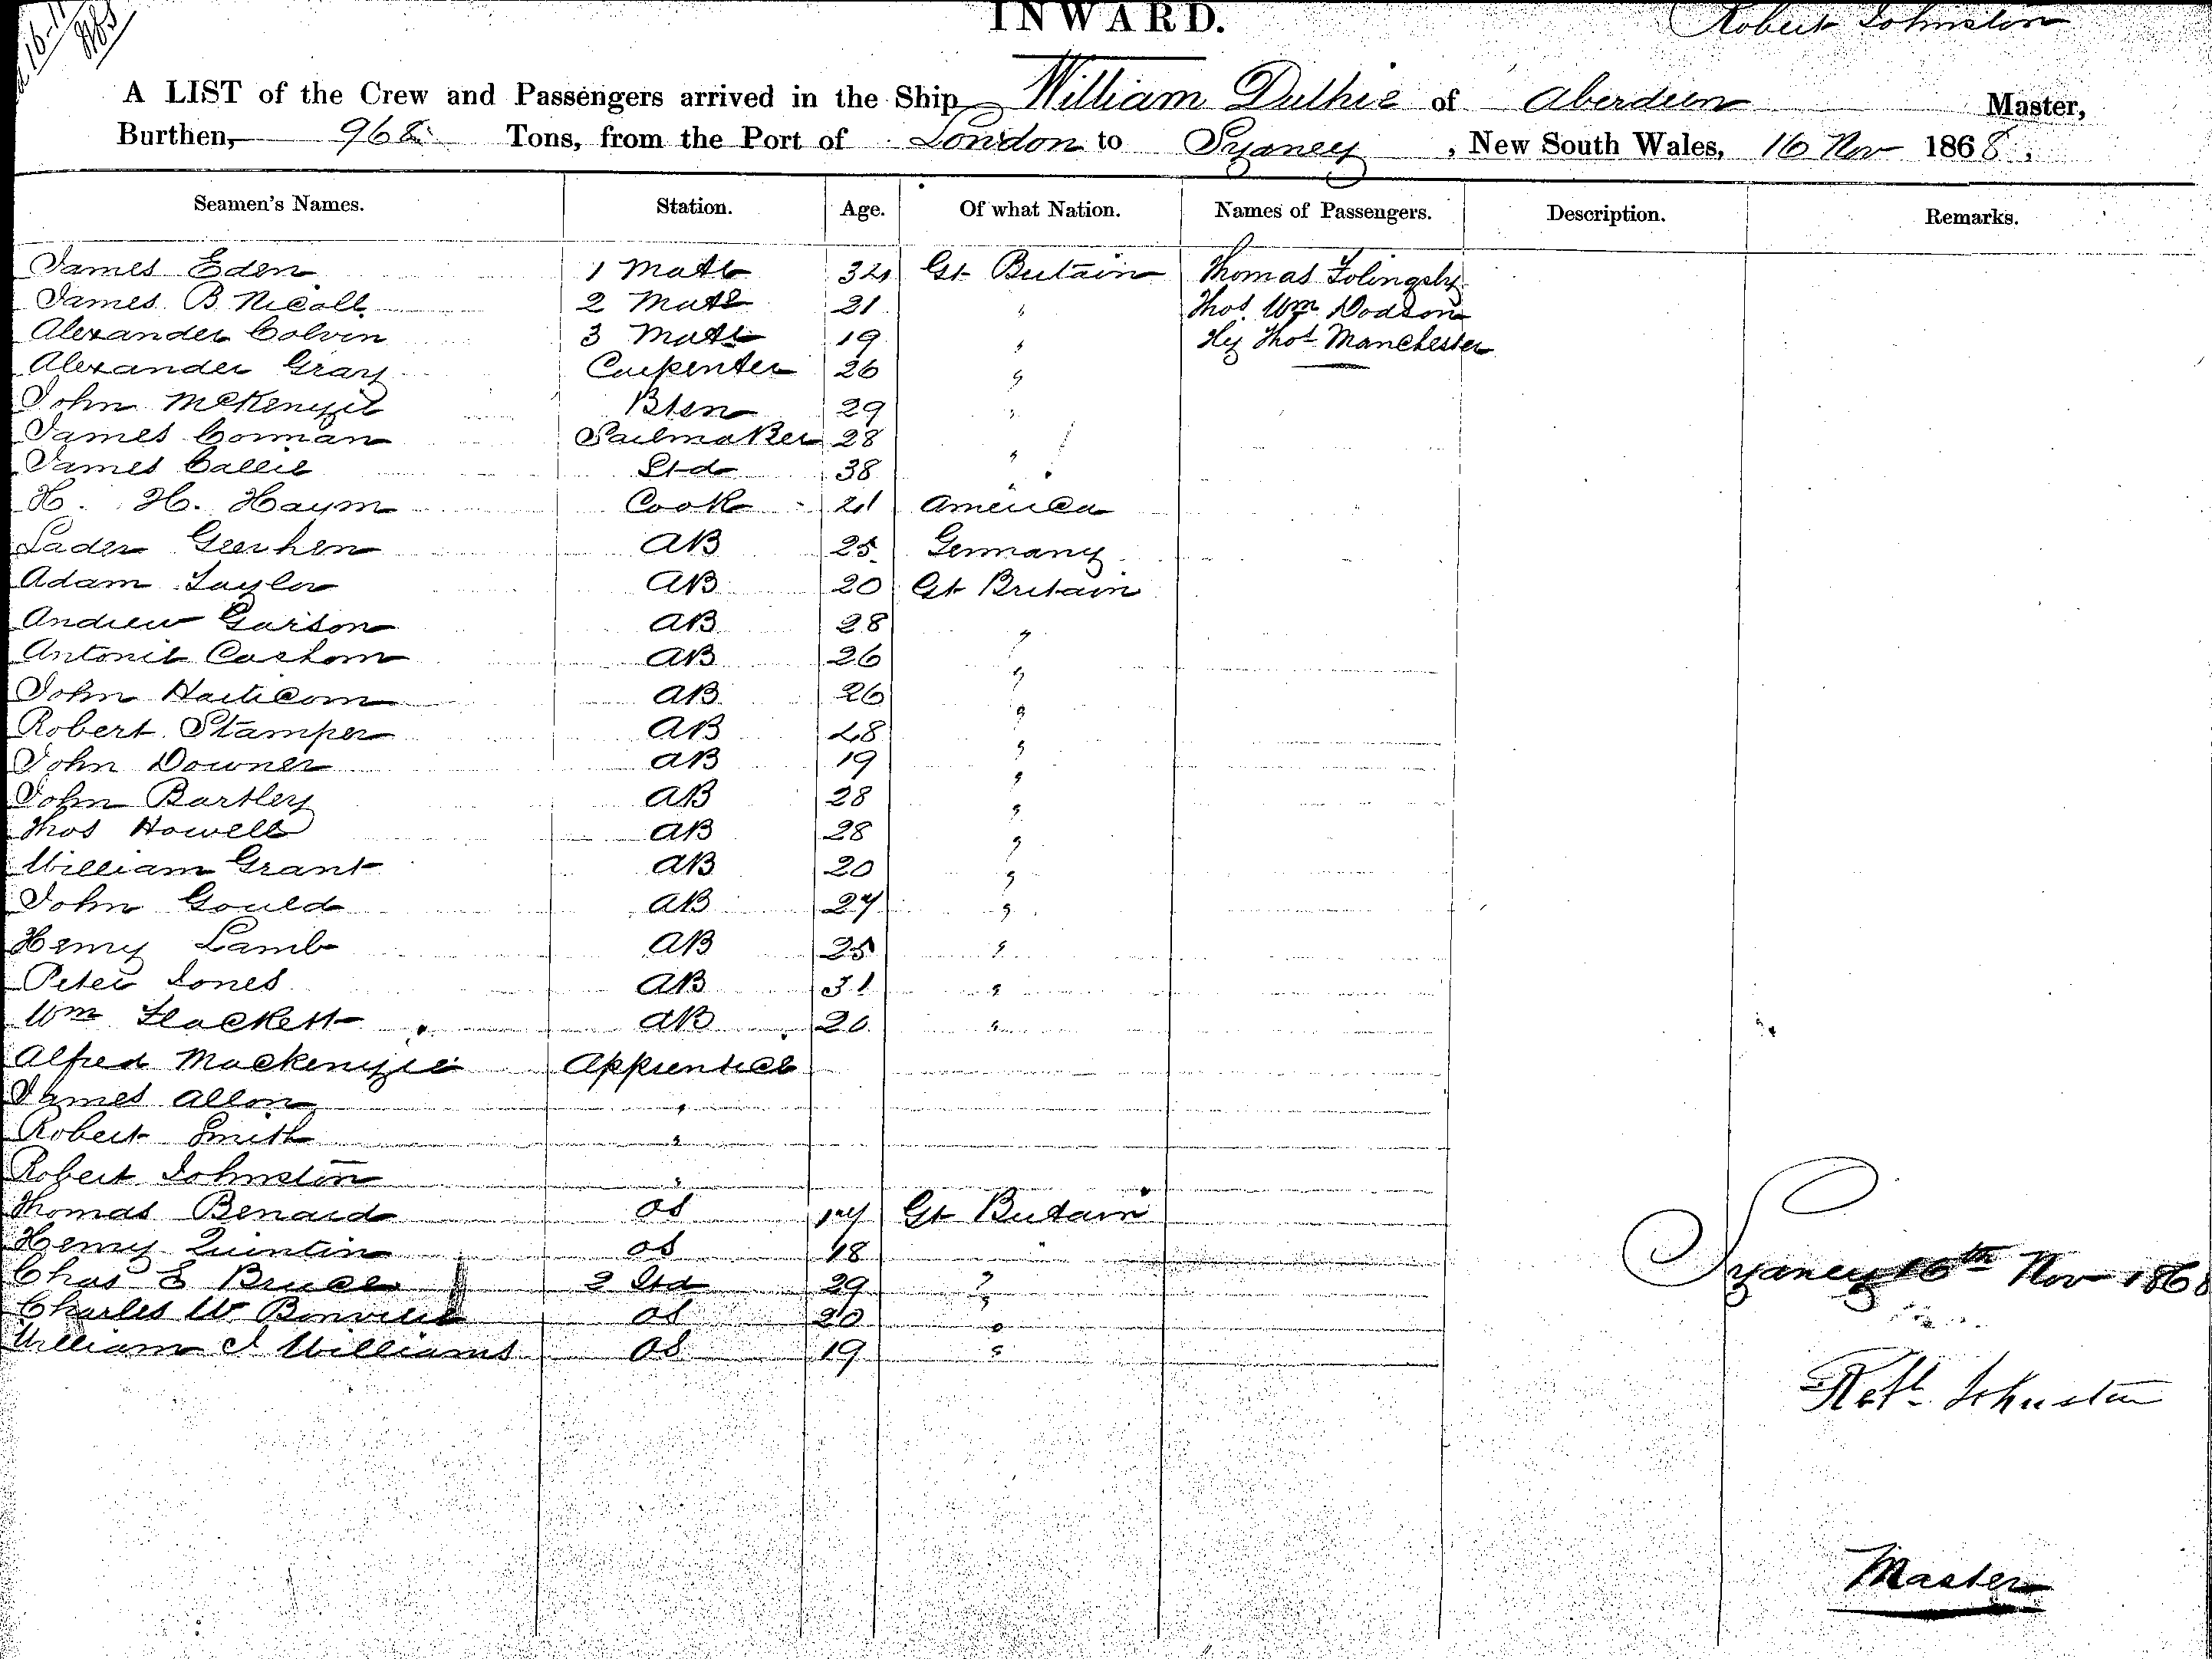 INWARD. Robert Johnston
A LIST of the Crew and Passengers arrived in the Ship William Duthie of Aberdeen Master,
Burthen, 968 Tons, from the Port of London to Sydney, New South Wales, 16 Nov 1868.
Seamen's Names. Station. Age. Of what Nation. Names of Passengers. Description. Remarks.
James Eden 1 Mate 34 Gt Britain Thomas Folingsby
James B Nicoll 2 Mate 21 " Thos Wm Dodson
Alexander Colvin 3 Mate 19 " Hy Thos Manchester
Alexander Gray Carpenter 26 "
John McKenzie Btsn 29 "
James Corman Sailmaker 28 "
James Callie Std 38 "
H. H. Haym Cook 21 America
Lader Geerhen AB 25 Germany
Adam Taylor AB 20 Gt Britain
Andrew Garson AB 28 "
Antonie Cashom AB 26 "
John Harticom AB 26 "
Robert Stamper AB 28 "
John Downer AB 19 "
John Bartley AB 28 "
Thos Howell AB 28 "
William Grant AB 20 "
John Gould AB 27 "
Henry Lamb AB 25 "
Peter Jones AB 31 "
Wm Flackett AB 20 "
Alfred Mackenzie Apprentice
James Allon "
Robert Smith "
Robert Johnston "
Thomas Benard OS 17 Gt Britain
Henry Quintin OS 18 "
Chas E Bruce 2 Std 29 "
Sydney 16th Nov 1868
Charles W Bonville OS 20 "
William J Williams OS 19 "
Robt Johnston
Master